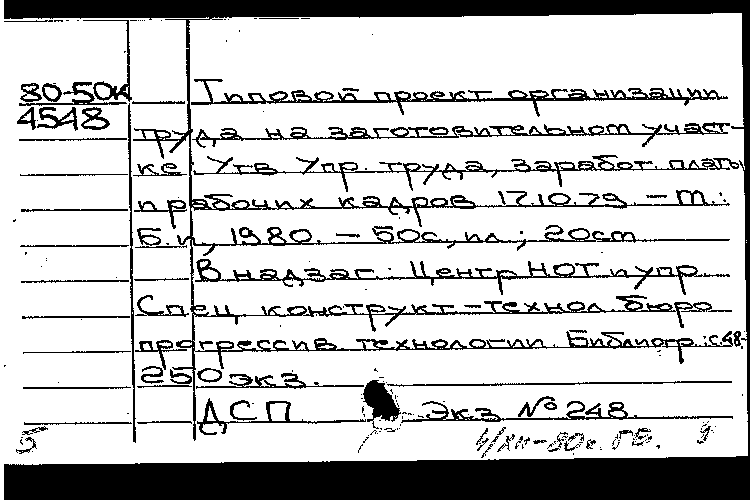 80-50к Типовой проект организации
4548 труда на заготовительном участ-
ке: Утв Упр. труда, заработ. платы
и рабочих кадров 17.10.79. – М.:
Б.и, 1980. – 50с, ил; 20см
В надзаг: Центр НОТ и упр.
Спец. конструкт-технол. бюро
прогрессив. технологии. Библиогр: с48.
250экз.
ДСП Экз № 248.
5 9